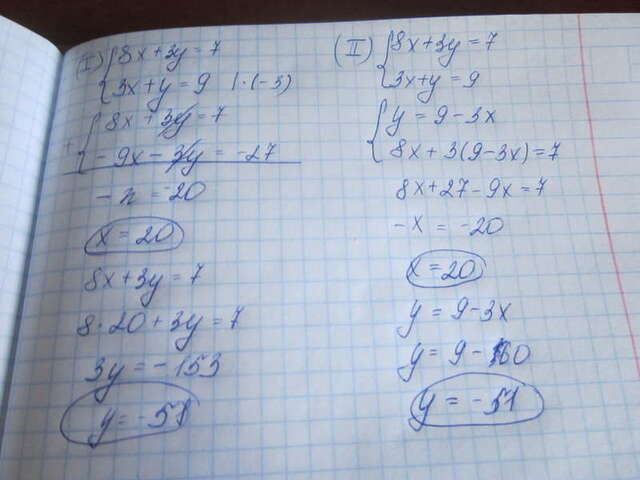 (I) { 8x + 3y = 7
3x + y = 9 | · (-3)
+ { 8x + 3y = 7
- 9x - 3y = -27
- x = -20
x = 20
8x + 3y = 7
8 · 20 + 3y = 7
3y = -153
y = -51
(II) { 8x + 3y = 7
3x + y = 9
{ y = 9 - 3x
8x + 3(9 - 3x) = 7
8x + 27 - 9x = 7
-x = -20
x = 20
y = 9 - 3x
y = 9 - 60
y = -51